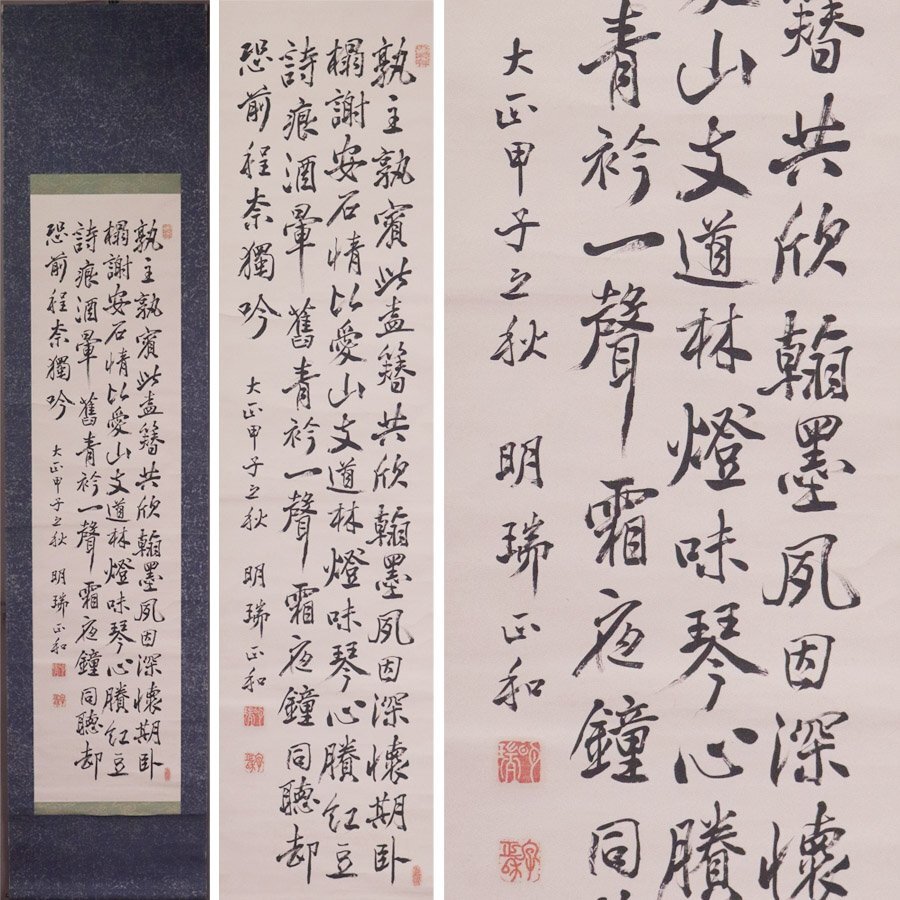 孰主孰賓此盍簪共欣翰墨夙因深懷期臥
榻謝安石情比愛山支道林燈味琴心賸紅豆
詩痕酒暈舊青衿一聲霜夜鐘同聽却
恐前程奈獨吟 大正甲子之秋 明瑞正和
孰主孰賓此盍簪共欣翰墨夙因深懷期臥
榻謝安石情比愛山支道林燈味琴心賸紅豆
詩痕酒暈舊青衿一聲霜夜鐘同聽却
恐前程奈獨吟 大正甲子之秋 明瑞正和
簪共欣翰墨夙因深懷
山支道林燈味琴心賸
青衿一聲霜夜鐘同
大正甲子之秋 明瑞正和